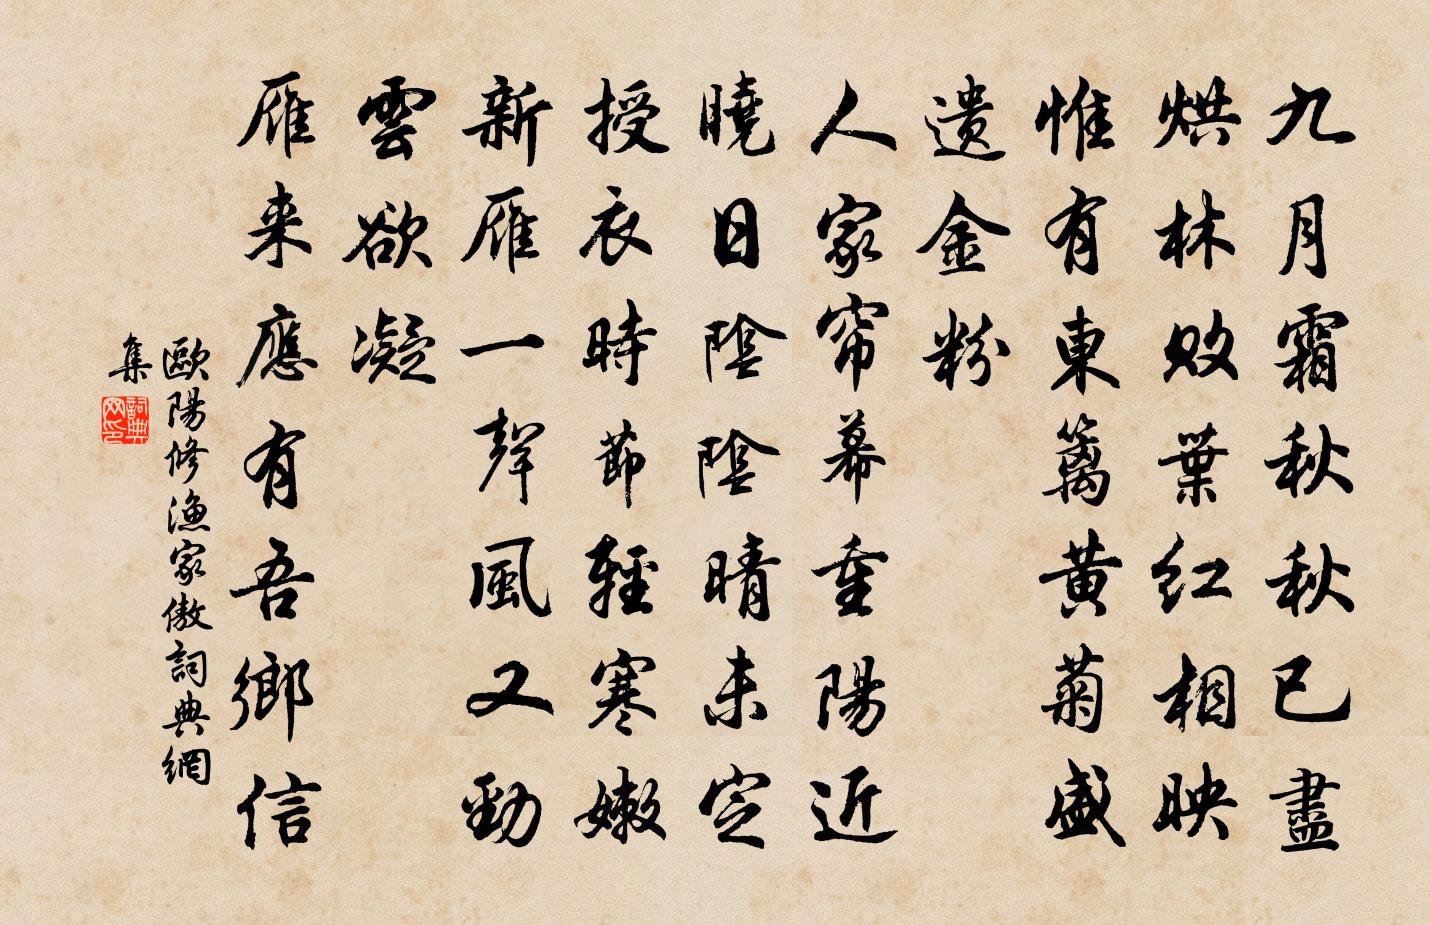 九月霜秋秋已盡
烘林敗葉紅相映
惟有東籬黄菊盛
遗金粉
人家帘幕重陽近
曉日陰陰晴未定
授衣時節輕寒嫩
新雁一聲風又勁
雲欲凝
雁来應有吾鄉信
歐陽修漁家傲詞典網
集
詞典
网印